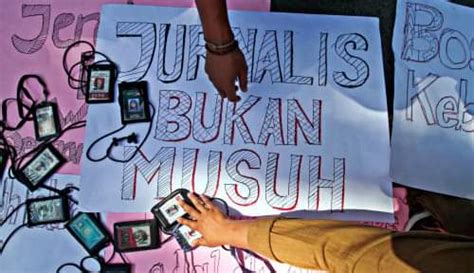 Jer
JURNALIS
BUKAN
MUSUH
Bos
Keb